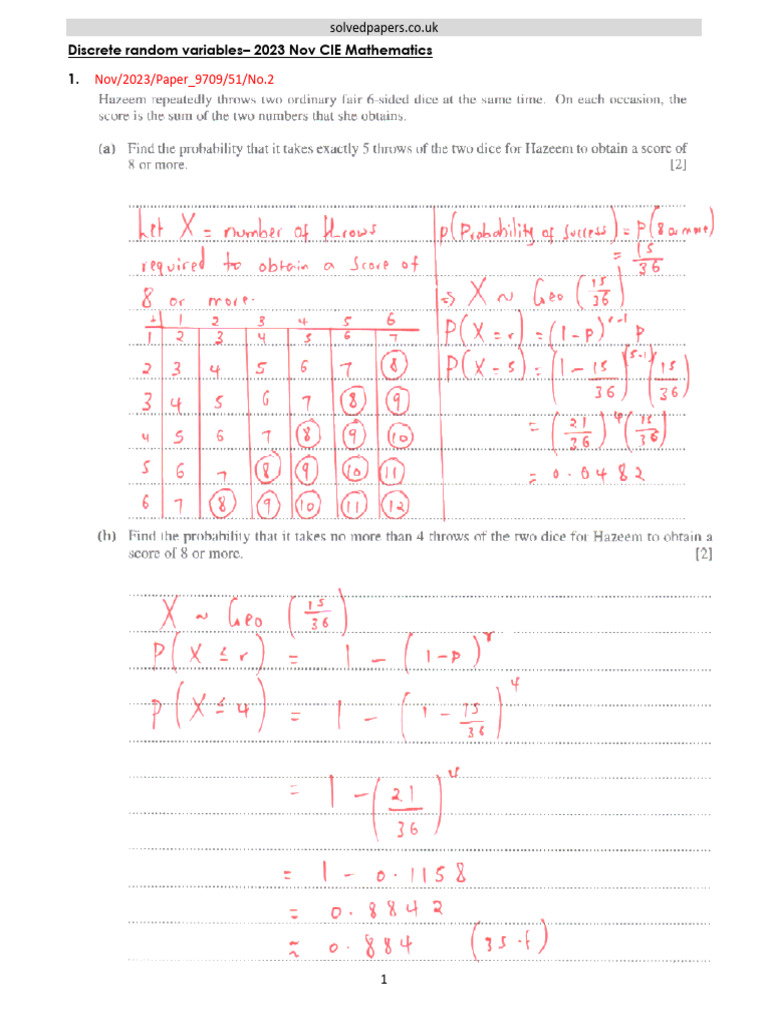 solvedpapers.co.uk
Discrete random variables– 2023 Nov CIE Mathematics
1. Nov/2023/Paper_9709/51/No.2
Hazeem repeatedly throws two ordinary fair 6-sided dice at the same time. On each occasion, the
score is the sum of the two numbers that she obtains.
(a) Find the probability that it takes exactly 5 throws of the two dice for Hazeem to obtain a score of
8 or more. [2]
Let X = number of throws
required to obtain a score of
8 or more.
+ 1 2 3 4 5 6
1 2 3 4 5 6 7
2 3 4 5 6 7 8
3 4 5 6 7 8 9
4 5 6 7 8 9 10
5 6 7 8 9 10 11
6 7 8 9 10 11 12
P(Probability of success) = P(8 or more)
= 15/36
⇒ X ~ Geo (15/36)
P(X = r) = (1-p)^(r-1) p
P(X = 5) = (1 - 15/36)^(5-1) (15/36)
= (21/36)^4 (15/36)
= 0.0482
(b) Find the probability that it takes no more than 4 throws of the two dice for Hazeem to obtain a
score of 8 or more. [2]
X ~ Geo (15/36)
P(X ≤ r) = 1 - (1-p)^r
P(X ≤ 4) = 1 - (1 - 15/36)^4
= 1 - (21/36)^4
= 1 - 0.1158
= 0.8842
≈ 0.884 (3s.f)
1